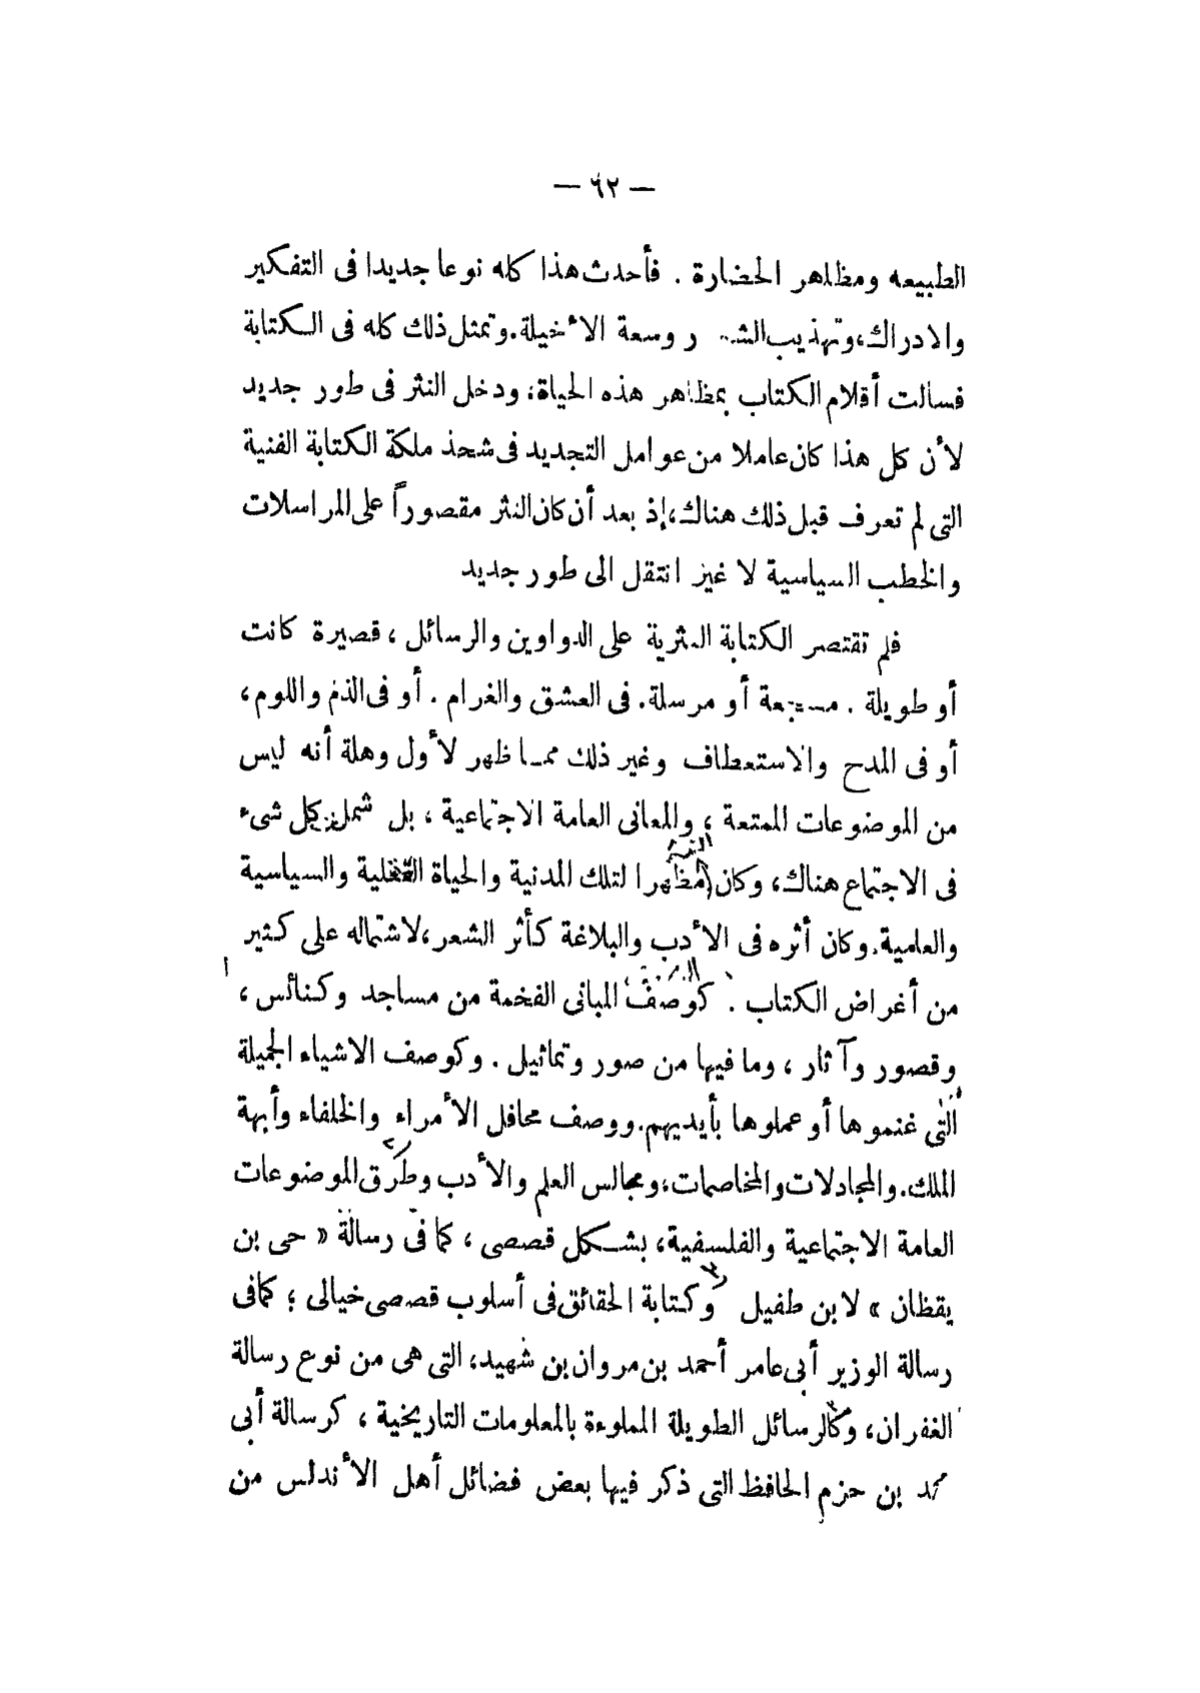 — ٦٢ —
الطبيعه ومظاهر الحضارة . فأحدث هذا كله نوعا جديدا فى التفكير
والادراك، وتهذيب وسعة الأخيلة. وتمثل ذلك كله فى الكتابة
فسالت أقلام الكتاب بمظاهر هذه الحياة، ودخل النثر فى طور جديد
لأن كل هذا كان عاملا من عوامل التجديد فى شحذ ملكة الكتابة الفنية
التى لم تعرف قبل ذلك هناك، إذ بعد أن كان النثر مقصوراً على المراسلات
والخطب السياسية لا غير انتقل الى طور جديد
فلم تقتصر الكتابة النثرية على الدواوين والرسائل ، قصيرة كانت
أو طويلة . مسجعة أو مرسلة. فى العشق والغرام . أو فى الذم واللوم،
أو فى المدح والاستعطاف وغير ذلك ممـا ظهر لأول وهلة أنه ليس
من الموضوعات الممتعة ، والمعانى العامة الاجتماعية ، بل شمل كل شىء
فى الاجتماع هناك، وكان (مظهرا لتلك المدنية والحياة العقلية والسياسية
والعامية. وكان أثره فى الأدب والبلاغة كأثر الشعر، لاشتماله على كثير
من أغراض الكتاب . كوصف المبانى الفخمة من مساجد وكنائس ،
وقصور وآثار ، وما فيها من صور وتماثيل . وكوصف الاشياء الجميلة
التى غنموها أو عملوها بأيديهم. ووصف محافل الأمراء والخلفاء وأبهة
الملك. والمجادلات والمخاصمات، ومجالس العلم والأدب وطرق الموضوعات
العامة الاجتماعية والفلسفية، بشكل قصصى ، كما فى رسالة « حى بن
يقظان » لابن طفيل وكتابة الحقائق فى أسلوب قصصى خيالى ؛ كمافى
رسالة الوزير أبى عامر أحمد بن مروان بن شهيد، التى هى من نوع رسالة
الغفران، وكالرسائل الطويلة المملوءة بالمعلومات التاريخية ، كرسالة أبى
محمد بن حزم الحافظ التى ذكر فيها بعض فضائل أهل الأندلس من